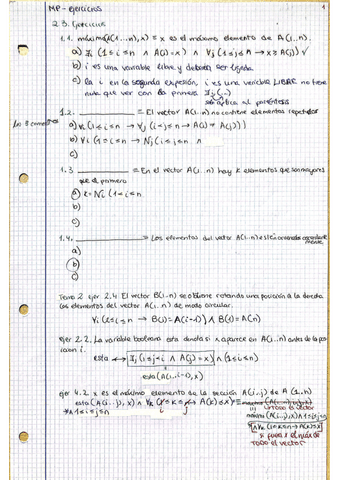 MP - ejercicios
1
2.3. Ejercicios
1.1. máximo(A(1..n), x) ≡ x es el máximo elemento de A(1..n).
a) ∃i (1≤i≤n ∧ A(i)=x) ∧ ∀j (1≤j≤n → x≥A(j)) ✓
b) i es una variable libre y debería ser ligada
c) la i en la segunda expresión, i es una variable LIBRE no tiene
nada que ver con la primera ∃i(..)
1.2. ≡ El vector A(1..n) no contiene elementos repetidos
a) ∀i (1≤i≤n → ∀j (i<j≤n → A(i) ≠ A(j)))
b) ∀i (1≤i≤n → Nj (1≤j≤n ∧
c)
1.3 ≡ En el vector A(1..n) hay x elementos que son mayores
que el primero
a) x = Ni (1<i≤n
b)
c)
1.4. ≡ Los elementos del vector A(1..n) están ordenados
a)
b)
c)
Tema 2 ejer 2.4 El vector B(1..n) se obtiene rotando una posición a la derecha
los elementos del vector A(1..n) de modo circular.
∀i (2≤i≤n → B(i)=A(i-1)) ∧ B(1)=A(n)
ejer 2.2. La variable booleana esta denota si x aparece en A(1..n) antes de la po
sición i.
esta ↔ ∃j (1≤j<i ∧ A(j)=x) ∧ (1≤i≤n)
esta(A(1..i-1), x)
ejer 4.2 x es el máximo elemento de la sección A(i..j) de A(1..n)
esta (A(i..j), x) ∧ ∀k (i≤k≤j → A(k)≤x)
∧ 1≤i≤j≤n
TODO el vector